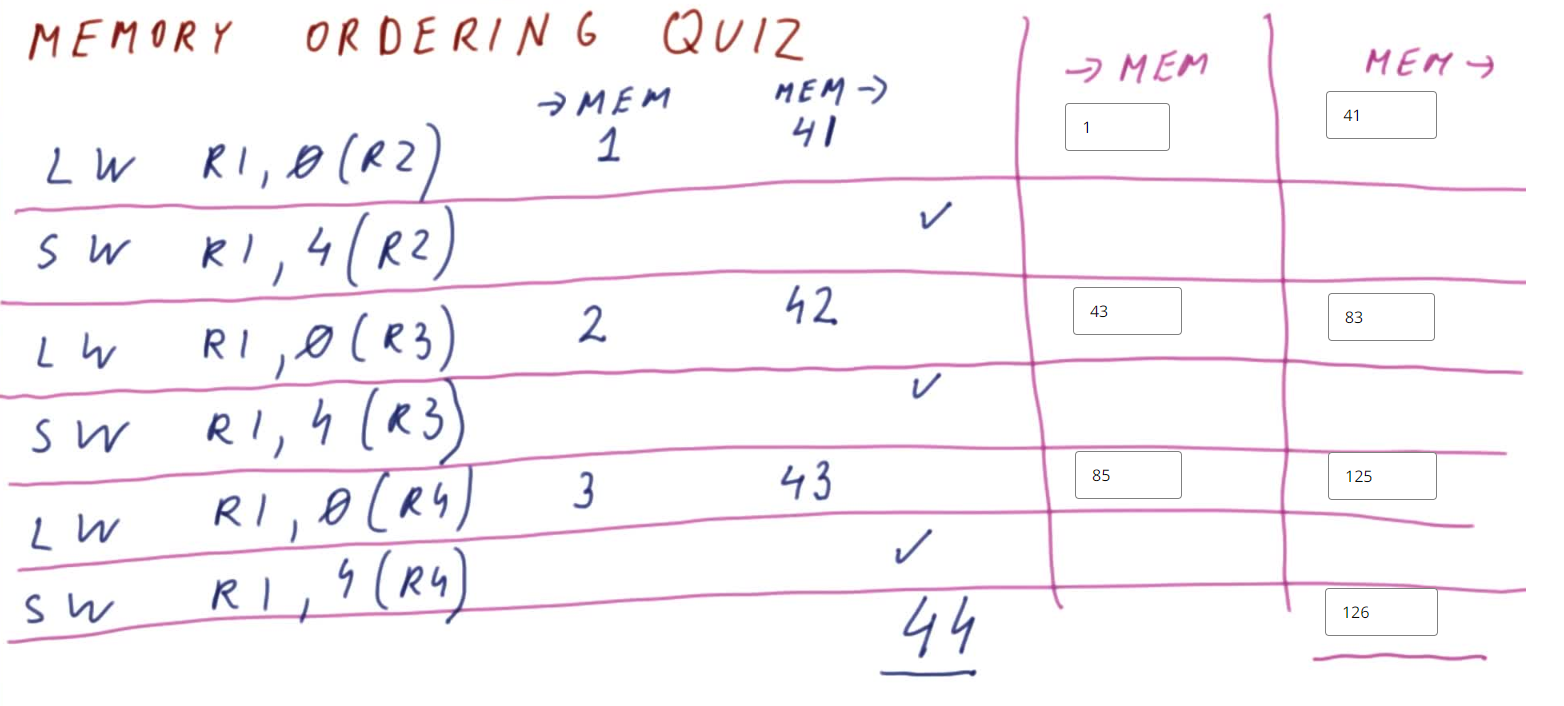 MEMORY ORDERING QUIZ
→MEM MEM→ → MEM MEM →
LW R1, 0(R2) 1 41 1 41
SW R1, 4(R2) ✓
LW R1, 0(R3) 2 42 43 83
SW R1, 4(R3) ✓
LW R1, 0(R4) 3 43 85 125
SW R1, 4(R4) ✓
44 126